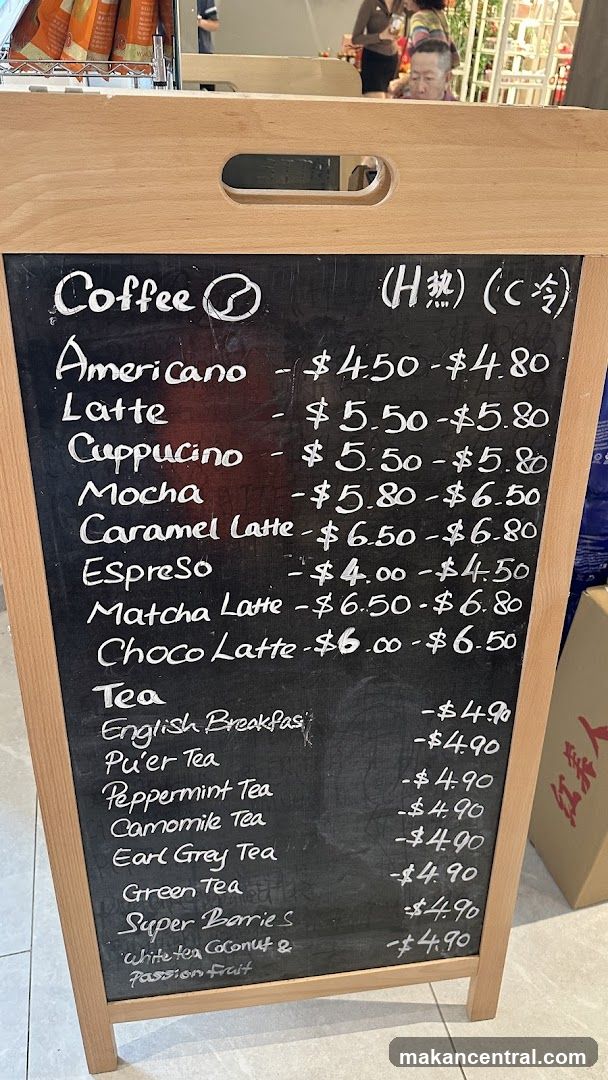 Coffee (H热) (C冷)
Americano - $4.50 - $4.80
Latte - $5.50 - $5.80
Cuppucino - $5.50 - $5.80
Mocha - $5.80 - $6.50
Caramel Latte - $6.50 - $6.80
Espreso - $4.00 - $4.50
Matcha Latte - $6.50 - $6.80
Choco Latte - $6.00 - $6.50
Tea
English Breakfas - $4.90
Pu'er Tea - $4.90
Peppermint Tea - $4.90
Camomile Tea - $4.90
Earl Grey Tea - $4.90
Green Tea - $4.90
Super Berries - $4.90
White tea Coconut & - $4.90
Passion fruit
makancentral.com